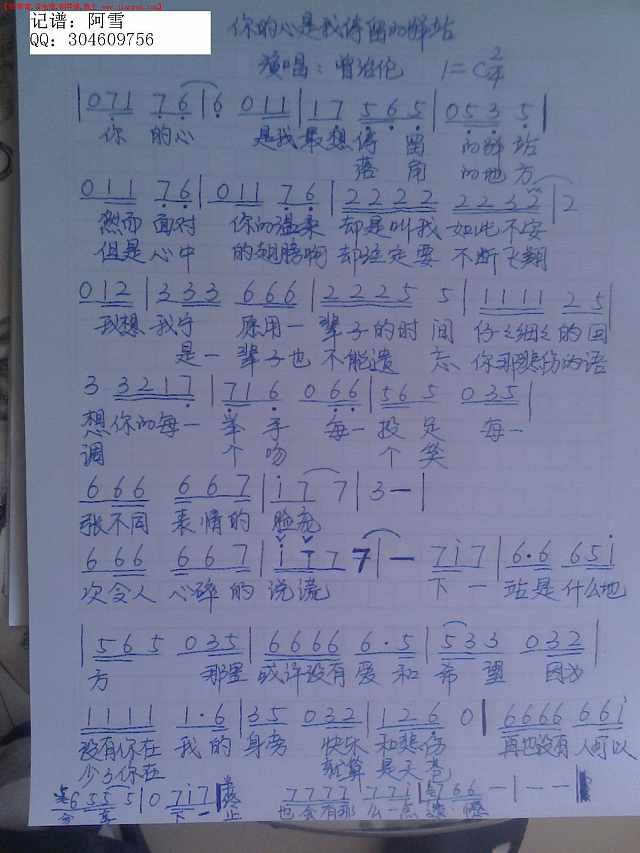 记谱：阿雪
QQ：304609756
你的心是我停留的驿站
演唱：曾治伦 1=C 2/4
|071 76|6 011|17 565|053 5|
你 的心 是我 最想停 留 的驿 站
落 角 的地 方
011 76|011 76|2222 2232|2
然而 面对 你的温柔 却是叫我 如此不安
但是 心中 的翅膀啊 却注定要 不断飞翔
012|333 666|2225 5|1111 25|
我想 我宁 愿用一 辈子的时 间 仔仔细细的回
是一 辈子也 不能遗 忘 你那悲伤的语
3 3217|716 066|565 035|
想 你的每一 举 手 每一 投 足 每一
调 个 吻 个 笑
666 667|i77|3-|
张不同 表情的 脸庞
666 667|i777|- 7i7|6·6 65i|
次令人 心碎的 说谎 下一 站是 什么地
|565 035|6666 6·5|533 032|
方 那里 或许没有 爱 和 希 望 因为
1111 1·6|35 032|126 0|6666 66i|
没有你在 我 的 身旁 快乐 和悲伤 再也没有人可以
少了你在 就算 是天
655 5|0 7i7|
下一
7777 77i|
也会有那 么一点